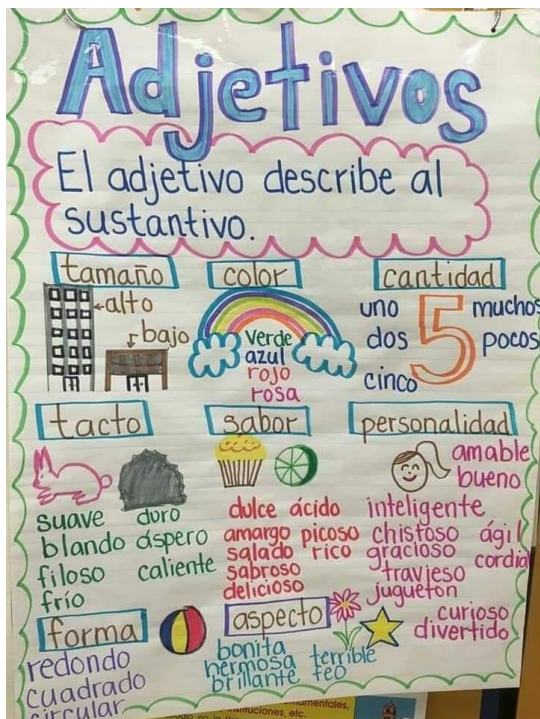 Adjetivos
El adjetivo describe al
sustantivo.
tamaño
alto
bajo
color
verde
azul
rojo
rosa
cantidad
uno
dos
cinco
5
muchos
pocos
tacto
suave duro
blando áspero
filoso caliente
frío
sabor
dulce ácido
amargo picoso
salado rico
sabroso
delicioso
personalidad
amable
bueno
inteligente
chistoso ágil
gracioso cordial
travieso
juguetón
curioso
divertido
forma
redondo
cuadrado
circular
aspecto
bonita
hermosa terrible
brillante feo
instituciones, etc.